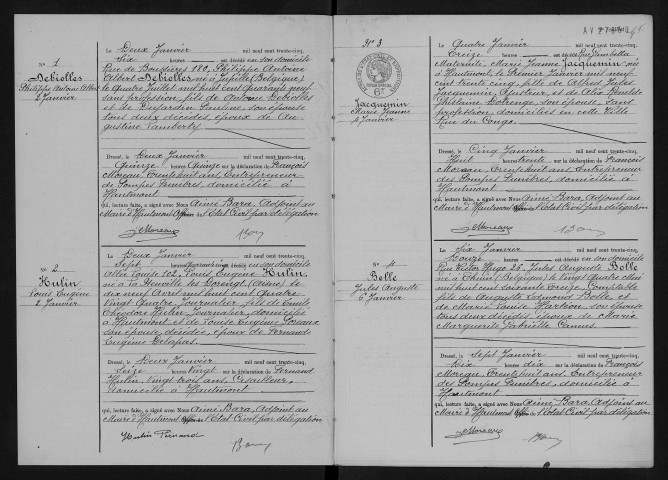 N° 1
Debiolles
Philippe Antoine Albert
2 Janvier
Le Deux Janvier mil neuf cent trente-cinq,
Six heures est décédé en son domicile
Rue de Boussières 180, Philippe Antoine
Albert Debiolles né à Jupille (Belgique)
le Quatre Juillet mil huit cent Quarante neuf
sans profession, fils de Antoine Debiolles
et de Dujardin Pauline, son épouse
tous deux décédés, époux de Au-
gustine Lamberty
Dressé, le Deux Janvier mil neuf cent trente-cinq,
Quinze heures Quinze sur la déclaration de François
Moreau, Trente huit ans Entrepreneur
de Pompes Funèbres, domicilié à
Hautmont
qui, lecture faite, a signé avec Nous Aimé Bara, Adjoint au
Maire d'Hautmont Officier de l'Etat Civil par délégation
N° 2
Hulin
Louis Eugène
2 Janvier
Le Deux Janvier mil neuf cent trente-cinq,
Sept heures est décédé en son domicile
Allée Louise 102, Louis Eugène Hulin,
né à La Neuville les Dorengt (Aisne) le
dix neuf Avril mil huit cent Quatre
vingt Quatre, Journalier, fils de Emile
Théodore Hulin, Journalier, domicilié
à Hautmont et de Louise Eugénie
son épouse, décédée, époux de Fernande
Eugénie Delapas
Dressé, le Deux Janvier mil neuf cent trente-cinq,
Seize heures Vingt sur la déclaration de Fernand
Hulin, Vingt trois ans, Cisailleur,
domicilié à Hautmont
qui, lecture faite, a signé avec Nous Aimé Bara, Adjoint au
Maire d'Hautmont Officier de l'Etat Civil par délégation
Hulin Fernand
N° 3
Jacquemin
Marie Jeanne
4 Janvier
Le Quatre Janvier mil neuf cent trente-cinq,
Treize heures est décédée Rue Gambetta
Maternité, Marie Jeanne Jacquemin née
à Hautmont, le Premier Janvier mil neuf
cent trente cinq, fille de Alfred Jules
Jacquemin, Ajusteur, et de Alix
Ghislaine son épouse, sans
profession, domiciliés en cette Ville
Rue du Congo
Dressé, le Cinq Janvier mil neuf cent trente-cinq,
Huit heures trente sur la déclaration de François
Moreau, Trente huit ans, Entrepreneur
des Pompes Funèbres, domicilié à
Hautmont
qui, lecture faite, a signé avec Nous Aimé Bara, Adjoint au
Maire d'Hautmont Officier de l'Etat Civil par délégation
N° 4
Belle
Jules Auguste
6 Janvier
Le Six Janvier mil neuf cent trente-cinq,
Douze heures est décédé en son domicile
Rue Victor Hugo 26, Jules Auguste Bolle
né à Chimay (Belgique) le Vingt Quatre
mil huit cent soixante Treize, Comptable
fils de Auguste Raymond Bolle et
de Marie son épouse
tous deux décédés, époux de Marie
Marguerite Gabrielle Cannes
Dressé, le Sept Janvier mil neuf cent trente-cinq,
Dix heures dix sur la déclaration de François
Moreau, Trente huit ans Entrepreneur
des Pompes Funèbres, domicilié à
Hautmont
qui, lecture faite, a signé avec Nous Aimé Bara, Adjoint au
Maire d'Hautmont Officier de l'Etat Civil par délégation